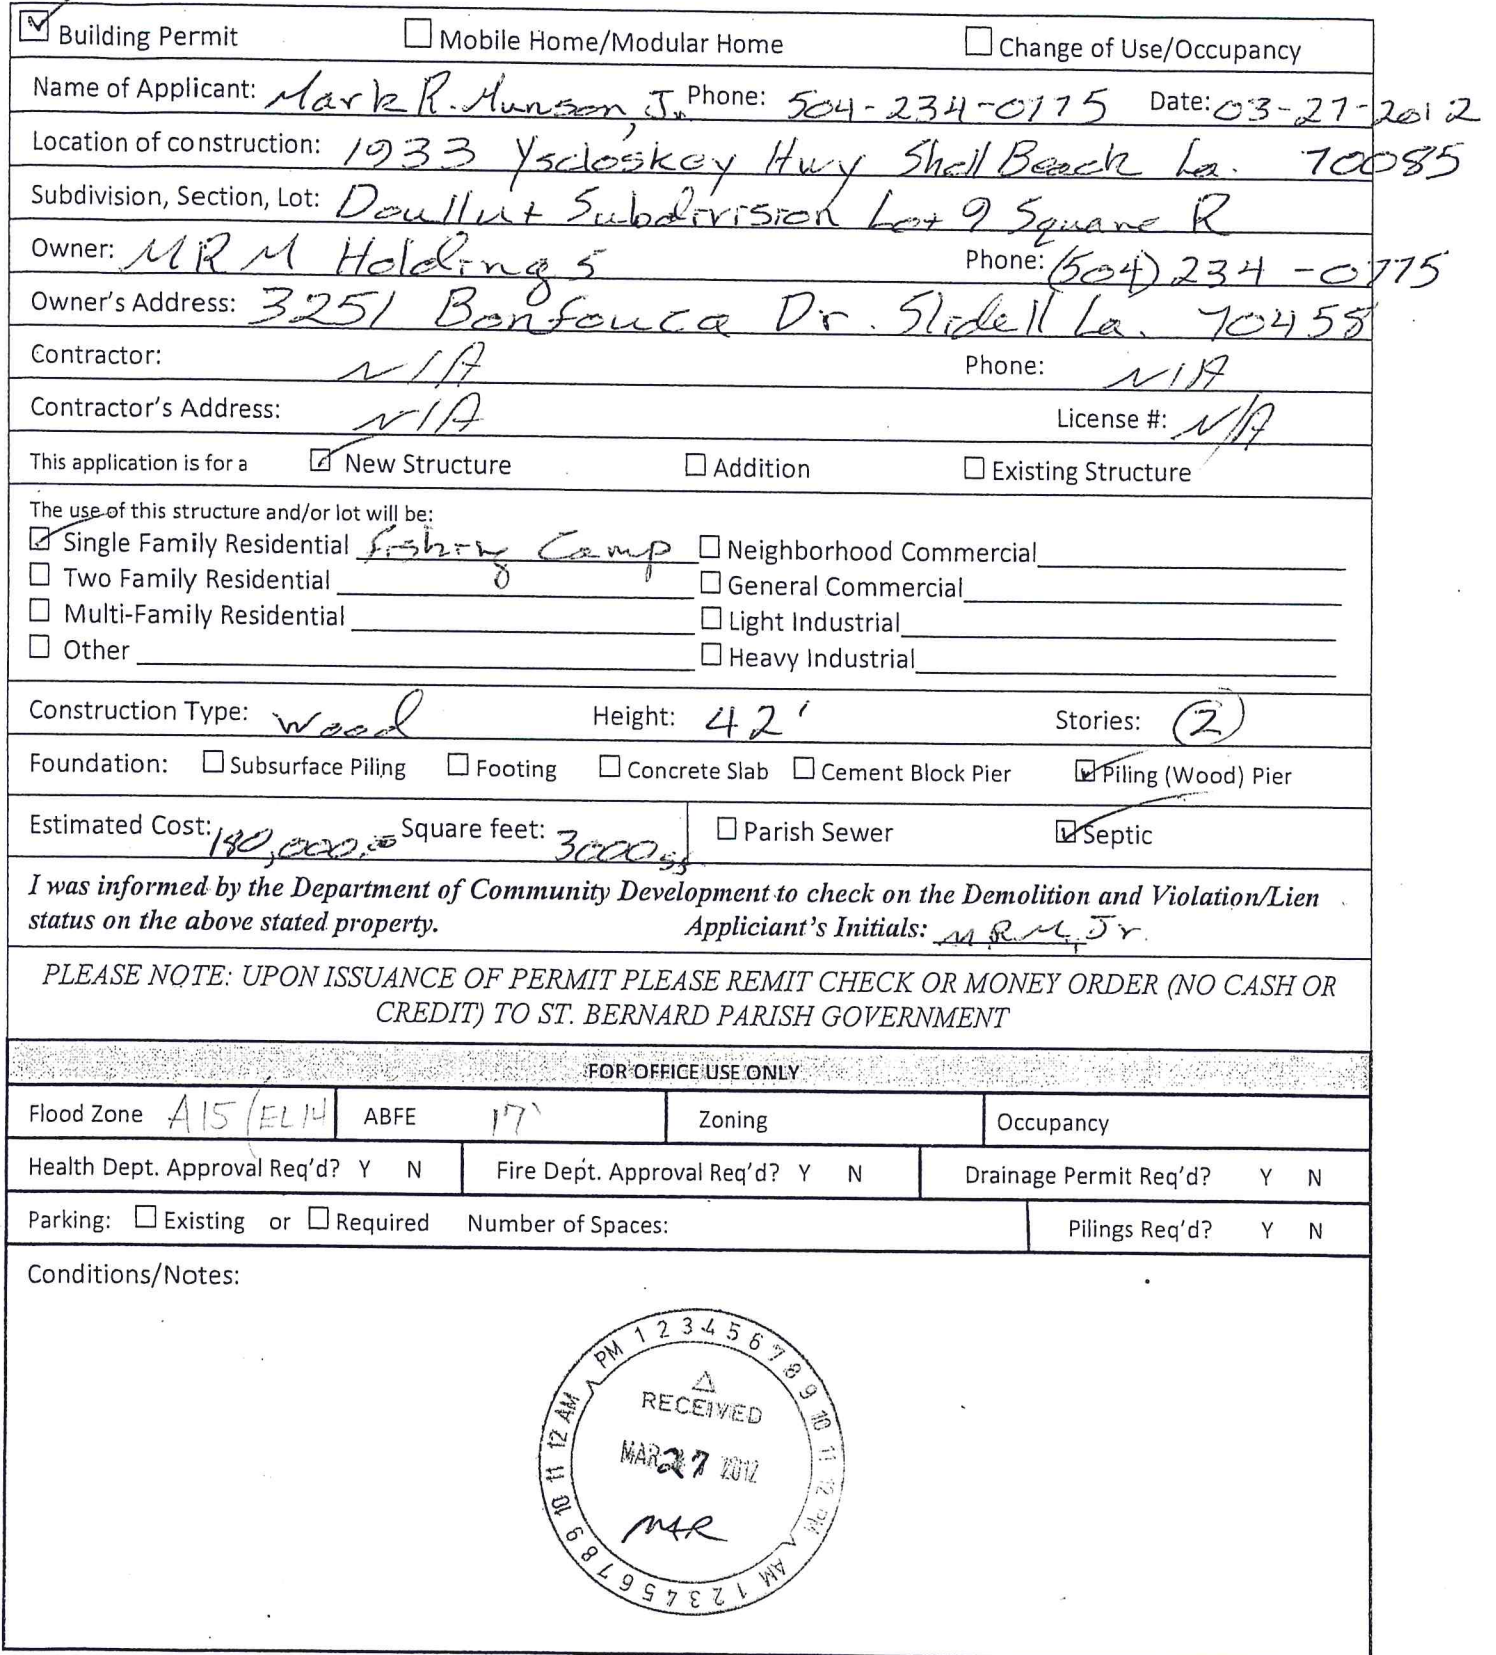 ☑ Building Permit ☐ Mobile Home/Modular Home ☐ Change of Use/Occupancy
Name of Applicant: Mark R. Munson, Jr. Phone: 504-234-0775 Date: 03-27-2012
Location of construction: 1933 Yscloskey Hwy Shell Beach La. 70085
Subdivision, Section, Lot: Doullut Subdivision Lot 9 Square R
Owner: MRM Holdings Phone: (504) 234-0775
Owner's Address: 3251 Bonfouca Dr. Slidell La. 70458
Contractor: N/A Phone: N/A
Contractor's Address: N/A License #: N/A
This application is for a ☑ New Structure ☐ Addition ☐ Existing Structure
The use of this structure and/or lot will be:
☑ Single Family Residential fishing Camp ☐ Neighborhood Commercial
☐ Two Family Residential ☐ General Commercial
☐ Multi-Family Residential ☐ Light Industrial
☐ Other ☐ Heavy Industrial
Construction Type: Wood Height: 42' Stories: 2
Foundation: ☐ Subsurface Piling ☐ Footing ☐ Concrete Slab ☐ Cement Block Pier ☑ Piling (Wood) Pier
Estimated Cost: 180,000.00 Square feet: 3000 ☐ Parish Sewer ☑ Septic
I was informed by the Department of Community Development to check on the Demolition and Violation/Lien
status on the above stated property. Appliciant's Initials: M.R.M. Jr.
PLEASE NOTE: UPON ISSUANCE OF PERMIT PLEASE REMIT CHECK OR MONEY ORDER (NO CASH OR
CREDIT) TO ST. BERNARD PARISH GOVERNMENT
FOR OFFICE USE ONLY
Flood Zone A15/EL14 ABFE 17' Zoning Occupancy
Health Dept. Approval Req'd? Y N Fire Dept. Approval Req'd? Y N Drainage Permit Req'd? Y N
Parking: ☐ Existing or ☐ Required Number of Spaces: Pilings Req'd? Y N
Conditions/Notes:
PM 1 2 3 4 5 6 7 8 9 10 11 12 PM
AM 1 2 3 4 5 6 7 8 9 10 11 12 AM
RECEIVED
MAR 27 2012